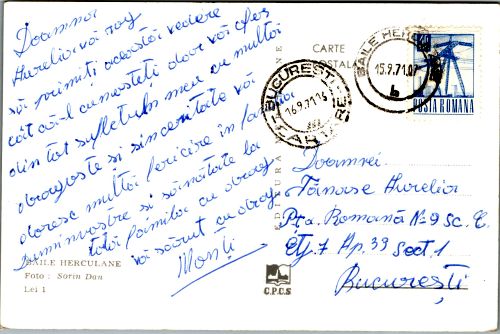 Doamnei
Aurelior vă rog
să primiți această vedere
cât că-l cunosteti doar vă ofer
din tot sufletul meu cu multă
dragoste și sinceritate vă
doresc multă fericire în familia
dumnvostre și sănătate la
toți păimilor cu drag
vă sărut cu drag
Monți
BĂILE HERCULANE
Foto : Sorin Dan
Lei 1
CARTE
POSTALĂ
EDITURA
BĂILE HERCULANE
15.9.71.07
b
BUCUREȘTI
16.9.71
CARTARE
POSTA ROMANA
C.P.C.S
Doamnei
Tănase Aurelior
Pța. Romană Nº 9 Sc. C
etj. 7 Ap. 39 Sect. 1
București